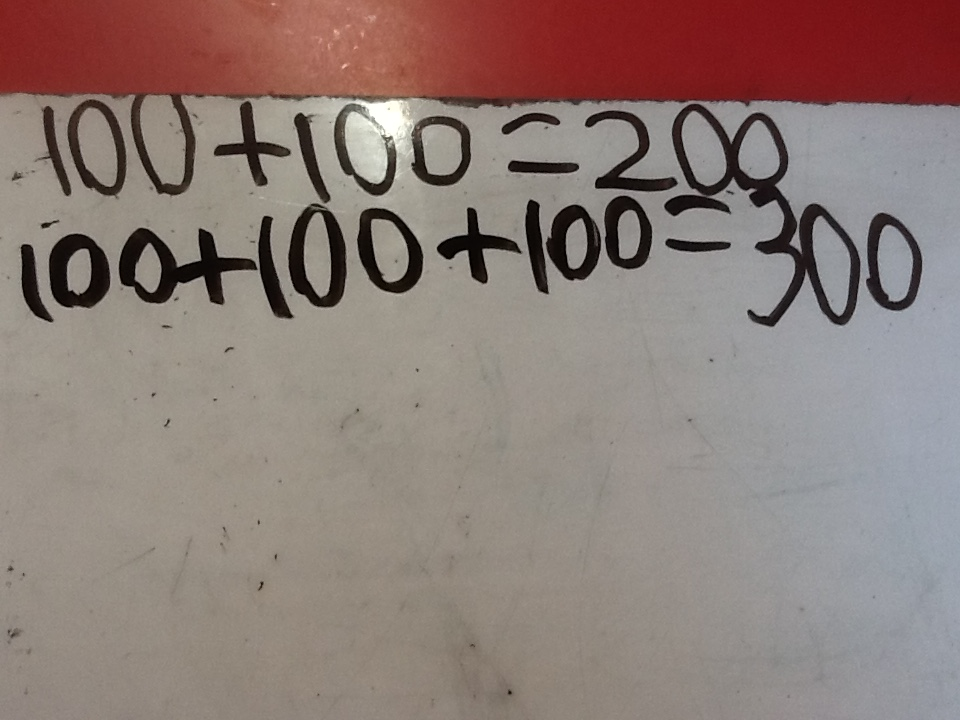 100+100=200
100+100+100=300